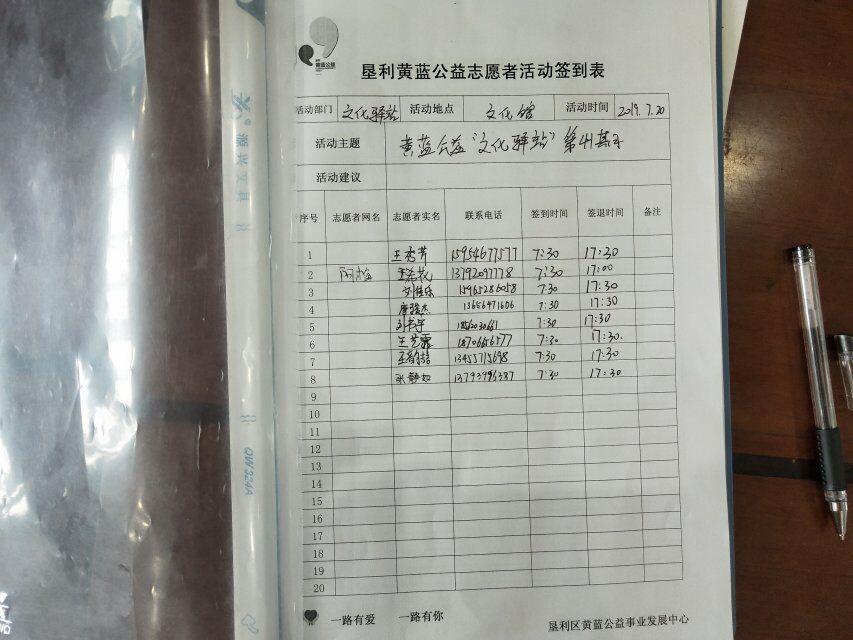 黄蓝公益
垦利黄蓝公益志愿者活动签到表
活动部门 文化驿站 活动地点 文化馆 活动时间 2019.7.20
活动主题 黄蓝公益"文化驿站"
活动建议
序号 志愿者网名 志愿者实名 联系电话 签到时间 签退时间 备注
1 王秀芳 15954677577 7:30 17:30
2 13792097778 7:30 17:00
3 刘佳乐 15965286058 7:30 17:30
4 13656471606 7:30 17:30
5 7:30 17:30
6 王艺霖 18706656577 7:30 17:30.
7 13455715698 7:30 17:30
8 张静如 13793996387 7:30 17:30
9
10
11
12
13
14
15
16
17
18
19
20
一路有爱 一路有你
垦利区黄蓝公益事业发展中心
振兴文具
QW324A